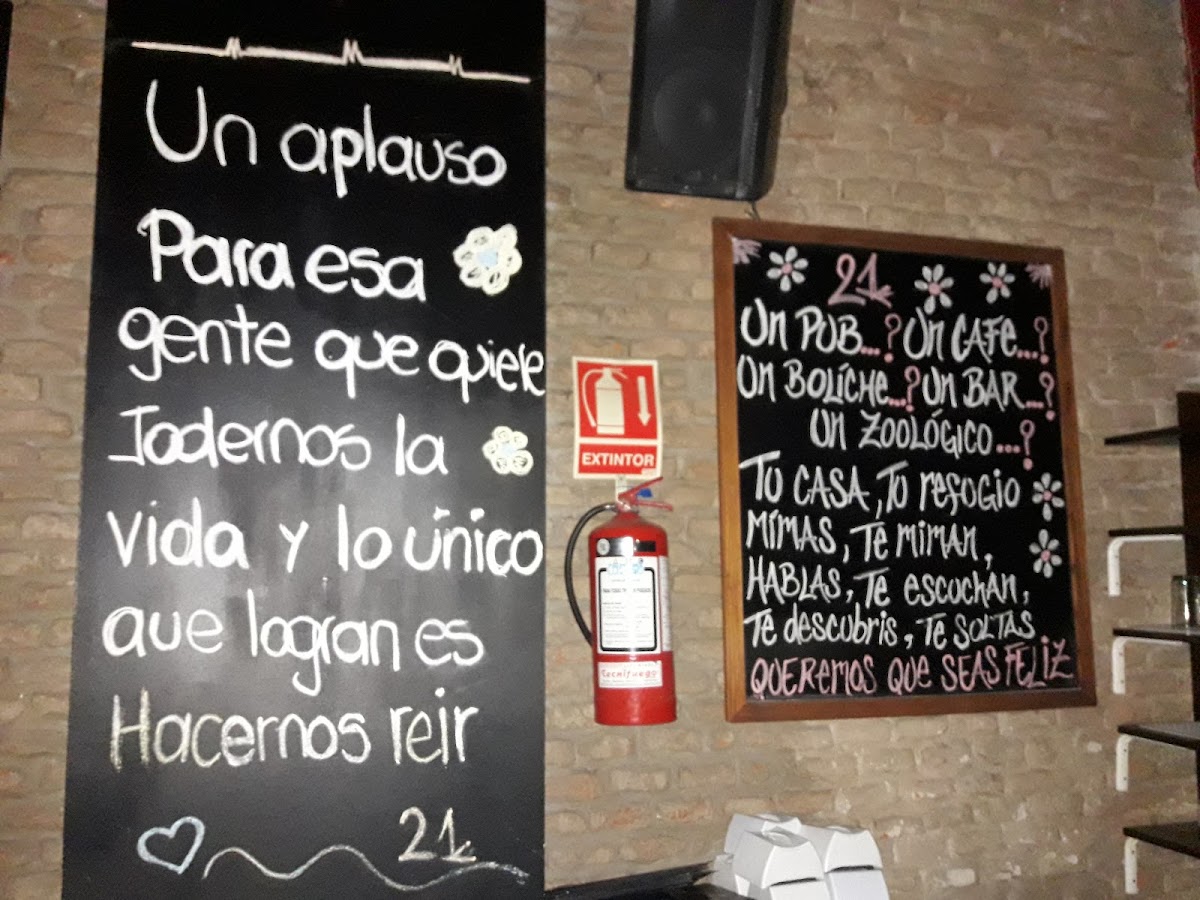 Un aplauso
Para esa
gente que quiere
Jodernos la
vida y lo único
que logran es
Hacernos reir
21
EXTINTOR
Tecnifuego
21
Un PUB...? Un CAFE...?
Un BOLÍCHE...? Un BAR...?
Un ZOOLÓGICO...?
TU CASA, TU refugio
MÍMAS, Te miman,
HABLAS, Te escuchan,
Te descubris, Te SOLTAS
QUEREMOS QUE SEAS FELIZ